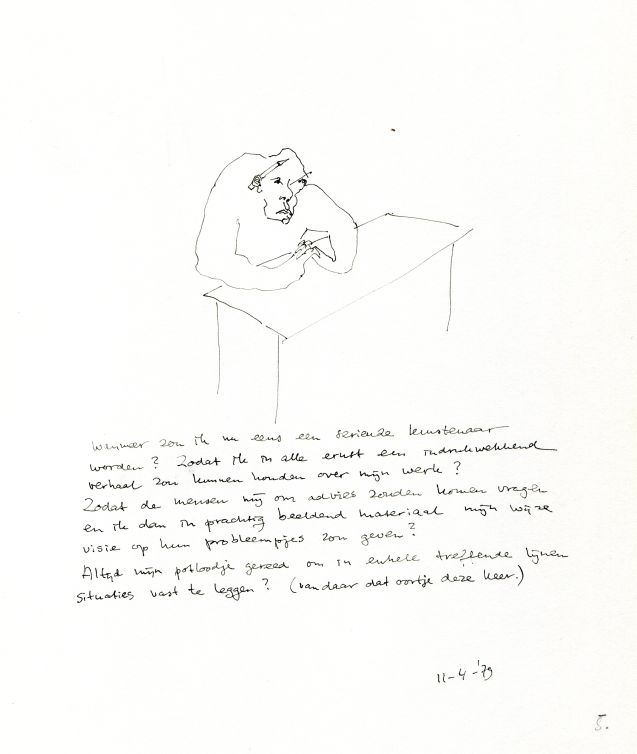 Wanneer zou ik nu eens een serieuze kunstenaar
worden? Zodat ik in alle ernst een indrukwekkend
verhaal zou kunnen houden over mijn werk?
Zodat de mensen mij om advies zouden komen vragen
en ik dan in prachtig beeldend materiaal mijn wijze
visie op hun probleempjes zou geven?
Altijd mijn potloodje gereed om in enkele treffende lijnen
situaties vast te leggen? (vandaar dat oortje deze keer.)
11-4-'79
5.